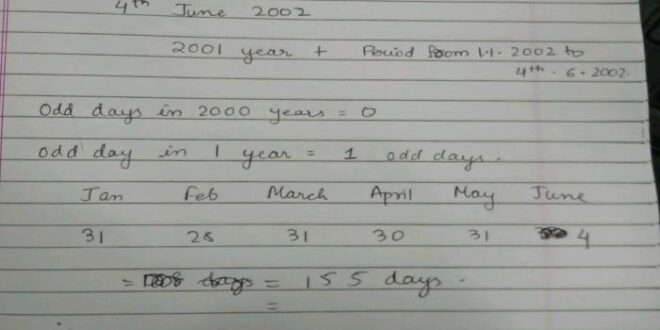 4th June 2002
2001 year + Period from 1.1.2002 to
4th.6.2002.
Odd days in 2000 years = 0
Odd day in 1 year = 1 odd days.
Jan Feb March April May June
31 28 31 30 31 4
= days = 155 days.
=